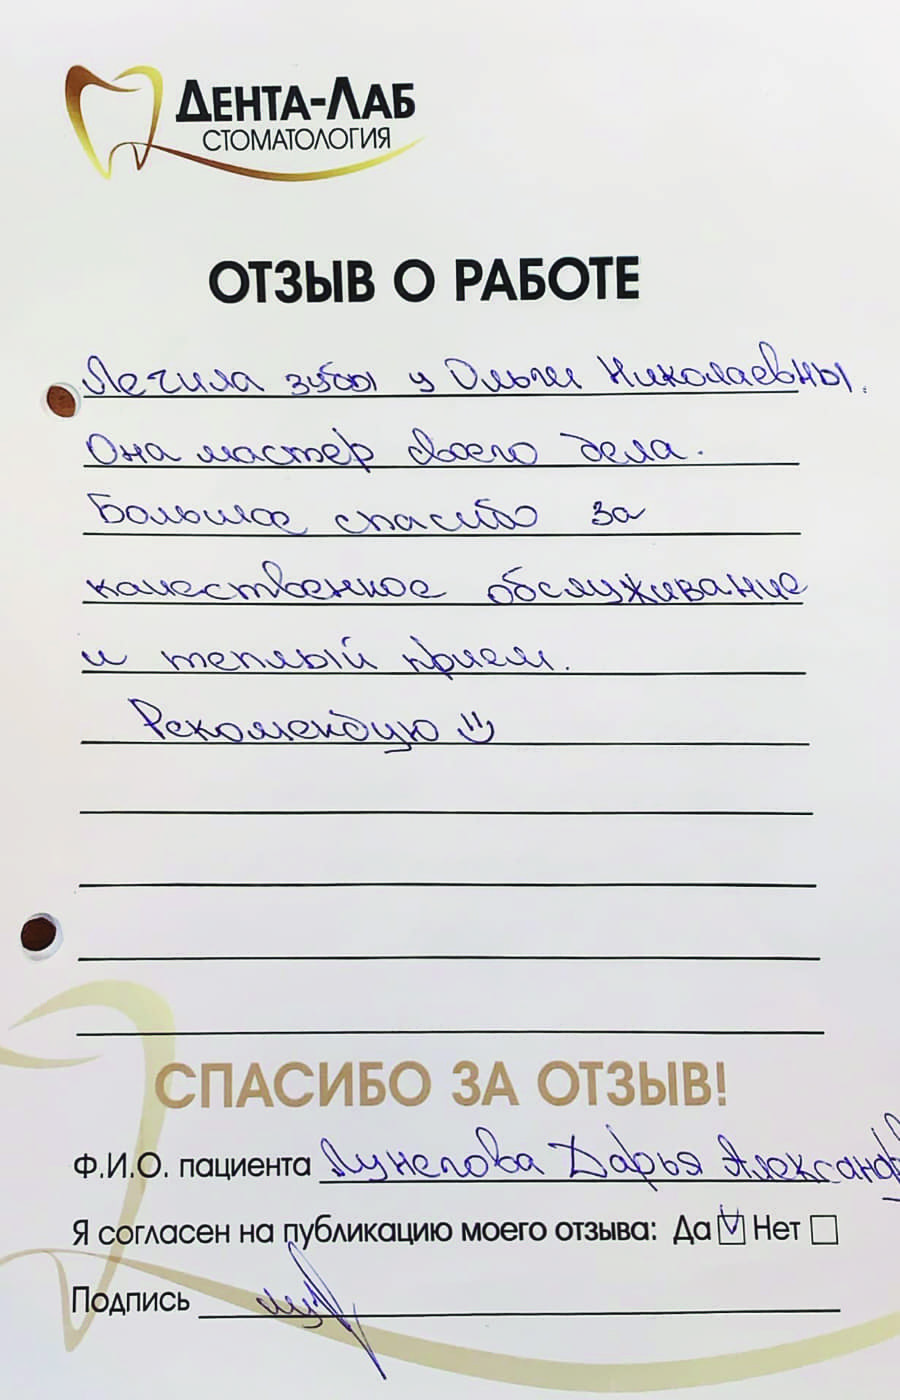 ДЕНТА-ЛАБ
СТОМАТОЛОГИЯ
ОТЗЫВ О РАБОТЕ
Лечила зубы у Ольги Николаевны.
Она мастер своего дела.
Большое спасибо за
качественное обслуживание
и теплый прием.
Рекомендую
СПАСИБО ЗА ОТЗЫВ!
Ф.И.О. пациента Дарья
Я согласен на публикацию моего отзыва: Да Нет
Подпись